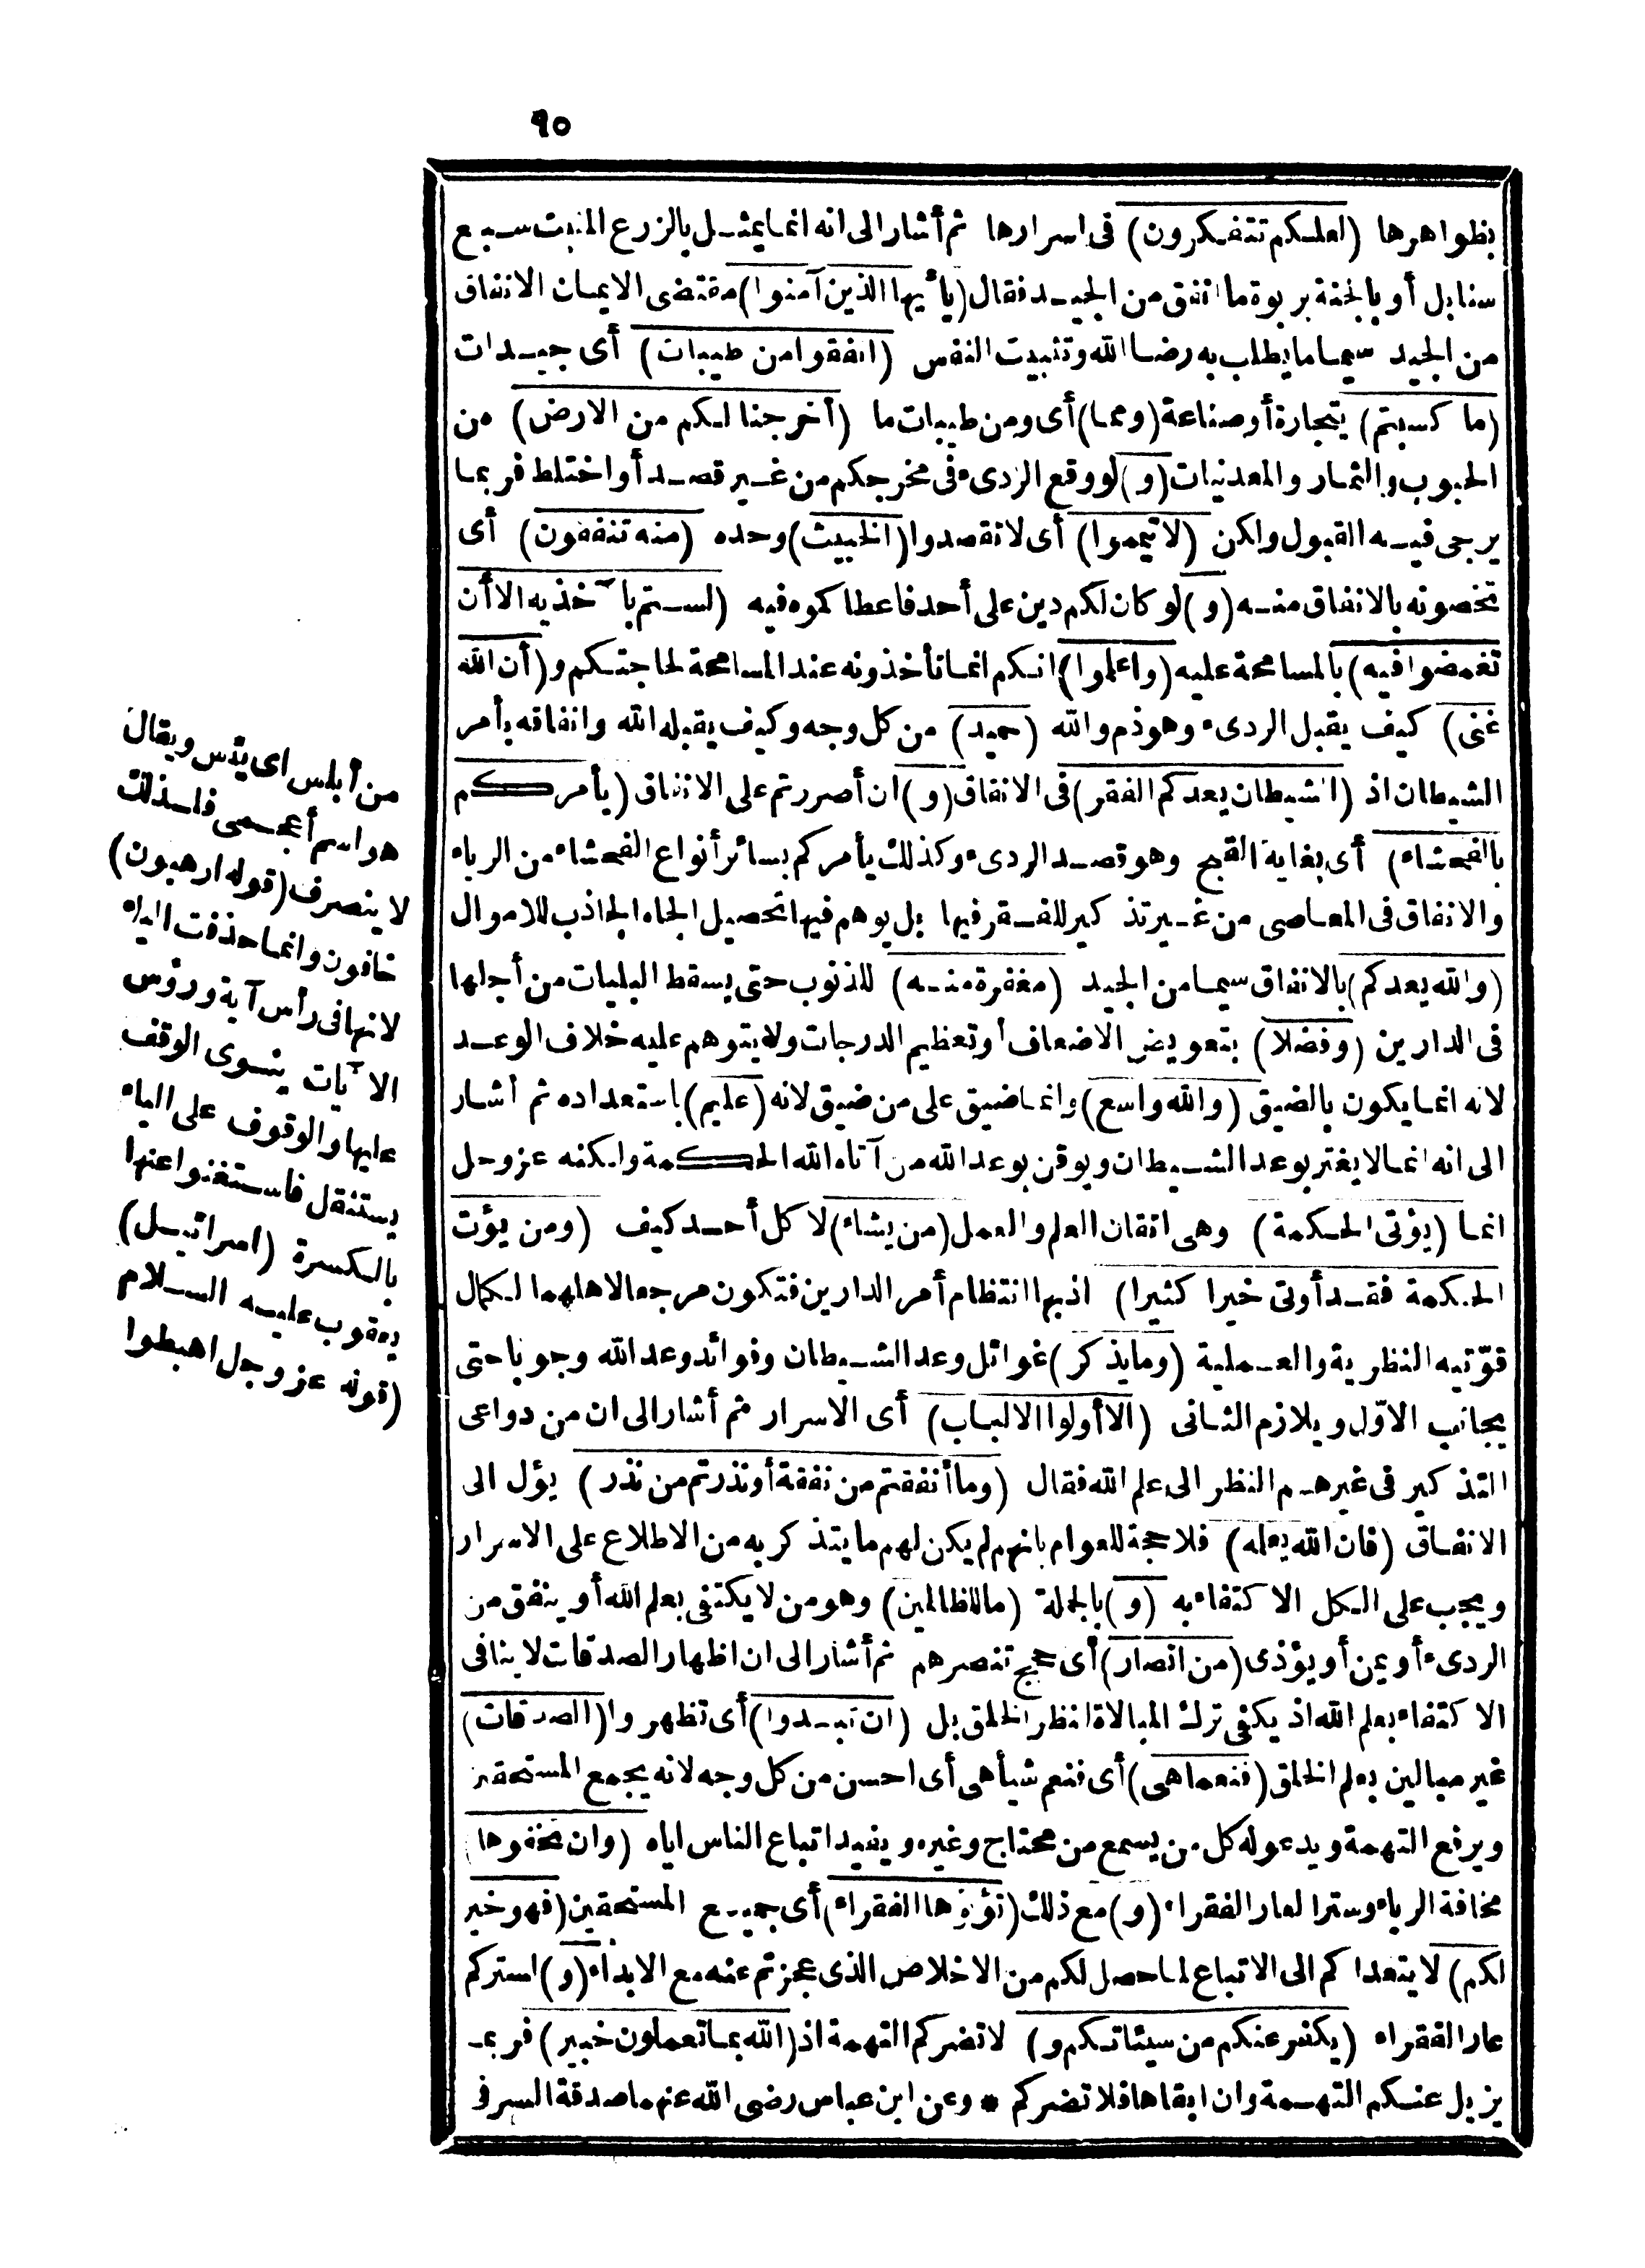 ٩٥
بظواهرها (لعلكم تتفكرون) فى اسرارها ثم أشار الى انه انما يمثل بالزرع المنبت سبع
سنابل أو بالجنة بربوة ما انفق من الجيد فقال (يا أيها الذين آمنوا) مقتضى الايمان الانفاق
من الجيد سيما ما يطلب به رضا الله وتثبيت النفس (انفقوا من طيبات) أى جيدات
(ما كسبتم) بتجارة أو صناعة (ومما) أى ومن طيبات ما (أخرجنا لكم من الارض) من
الحبوب والثمار والمعدنيات (و) لو وقع الردىء فى مخرجكم من غير قصد أو اختلط فربما
يرجى فيه القبول ولكن (لا تيمموا) أى لا تقصدوا (الخبيث) وحده (منه تنفقون) أى
تخصونه بالانفاق منه (و) لو كان لكم دين على أحد فاعطاكموه فيه (لستم بآخذيه الا أن
تغمضوا فيه) بالمسامحة عليه (واعلموا) انكم انما تأخذونه عند المسامحة لحاجتكم و (أن الله
غنى) كيف يقبل الردىء وهو ذم والله (حميد) من كل وجه وكيف يقبله الله وانفاقه بأمر
الشيطان اذ (الشيطان يعدكم الفقر) فى الانفاق (و) ان أصررتم على الانفاق (يأمركم
بالفحشاء) أى بغاية القبح وهو قصد الردىء وكذلك يأمركم بسائر أنواع الفحشاء من الرياء
والانفاق فى المعاصى من غير تذكير للفقر فيها بل يوهم فيها تحصيل الجاه الجاذب للاموال
(والله يعدكم) بالانفاق سيما من الجيد (مغفرة منه) للذنوب حتى يسقط البليات من أجلها
فى الدارين (وفضلا) بتعويض الاضعاف أو تعظيم الدرجات ولا يتوهم عليه خلاف الوعد
لانه انما يكون بالضيق (والله واسع) وانما ضيق على من ضيق لانه (عليم) باستعداده ثم أشار
الى انه انما لا يغتر بوعد الشيطان ويوقن بوعد الله من آتاه الله الحكمة ولكنه عز وجل
انما (يؤتى الحكمة) وهى اتقان العلم والعمل (من يشاء) لا كل أحد كيف (ومن يؤت
الحكمة فقد أوتى خيرا كثيرا) اذ بها انتظام أمر الدارين فتكون مرجعا لاهلهما لكمال
قوّتيه النظرية والعملية (وما يذكر) غوائل وعد الشيطان وفوائد وعد الله وجوبا حتى
يجانب الاوّل ويلازم الثانى (الا أولوا الالباب) أى الاسرار ثم أشار الى ان من دواعى
التذكير فى غيرهم النظر الى علم الله فقال (وما أنفقتم من نفقة أو نذرتم من نذر) يؤل الى
الانفاق (فان الله يعلمه) فلا حجة للعوام بانهم لم يكن لهم ما يتذكر به من الاطلاع على الاسرار
ويجب على الكل الاكتفاء به (و) بالجملة (ما للظالمين) وهو من لا يكتفى بعلم الله أو ينفق من
الردىء أو يمن أو يؤذى (من انصار) أى حجج تنصرهم ثم أشار الى ان اظهار الصدقات لا ينافى
الاكتفاء بعلم الله اذ يكفى ترك المبالاة لنظر الخلق بل (ان تبدوا) أى تظهروا (الصدقات)
غير مبالين بعلم الخلق (فنعما هى) أى فنعم شيأ هى أى احسن من كل وجه لانه يجمع المستحقين
ويرفع التهمة ويدعو له كل من يسمع من محتاج وغيره ويفيد اتباع الناس اياه (وان تخفوها)
مخافة الرياء وسترا لعار الفقراء (و) مع ذلك (تؤتوها الفقراء) أى جميع المستحقين (فهو خير
لكم) لا يتعداكم الى الاتباع لما حصل لكم من الاخلاص الذى عجزتم عنه مع الابداء (و) لستركم
عار الفقراء (يكفر عنكم من سيئاتكم و) لا تضركم التهمة اذ (الله بما تعملون خبير) فربما
يزيل عنكم التهمة وان ابقاها فلا تضركم * وعن ابن عباس رضى الله عنهما صدقة السر فى
من أبلس اى يئس ويقال
هو اسم أعجمى فلذلك
لا ينصرف (قوله ارهبون)
خافون وانما حذفت الياء
لانها فى رأس آية ورؤس
الآيات ينوى الوقف
عليها والوقوف على الياء
يستثقل فاستغنوا عنها
بالكسرة (اسرائيل)
يعقوب عليه السلام
(قوله عز وجل اهبطوا